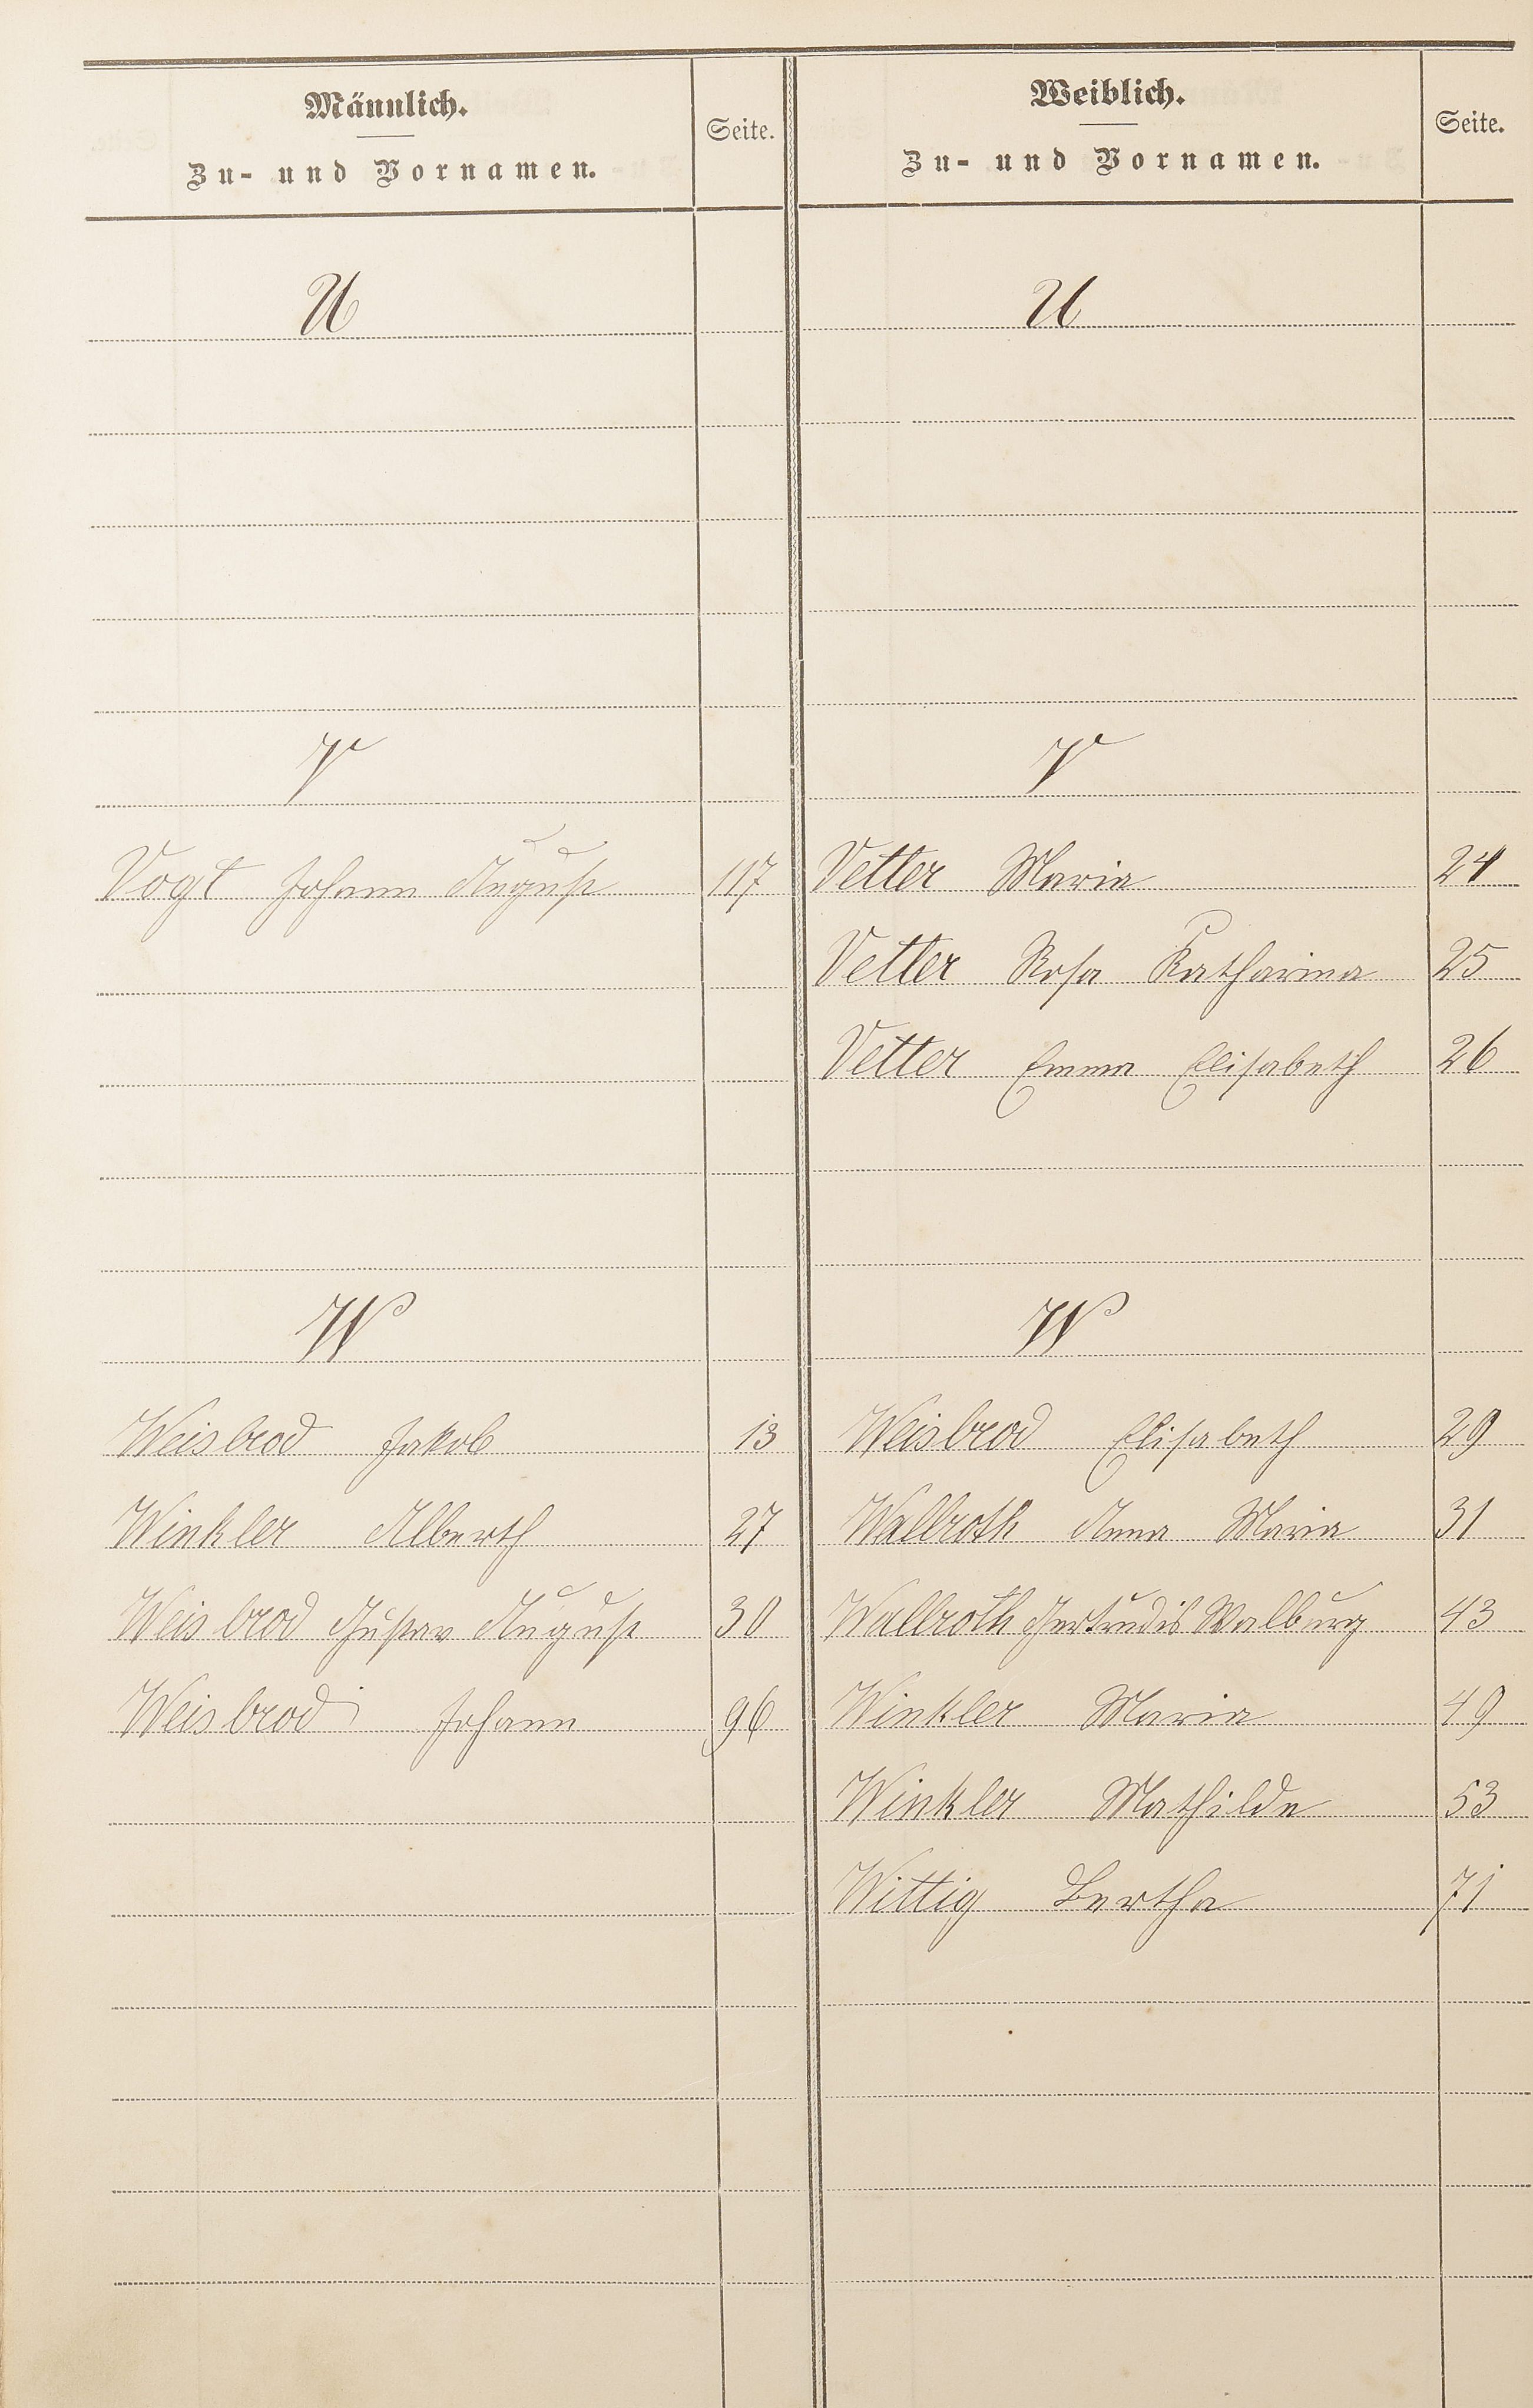 Männlich.
Zu- und Vornamen.
Seite.
Weiblich.
Zu- und Vornamen.
Seite.
U
U
V
V
Vogt Johann August 117
Vetter Maria 24
Vetter Rosa Katharina 25
Vetter Emma Elisabeth 26
W
W
Weisbrod Jakob 13
Weisbrod Elisabeth 29
Winkler Alberth 27
Wallroth Anna Maria 31
Weisbrod Gustav August 30
Wallroth Gertrudis Walburg 43
Weisbrod Johann 96
Winkler Maria 49
Winkler Mathilde 53
Wittig Bertha 71